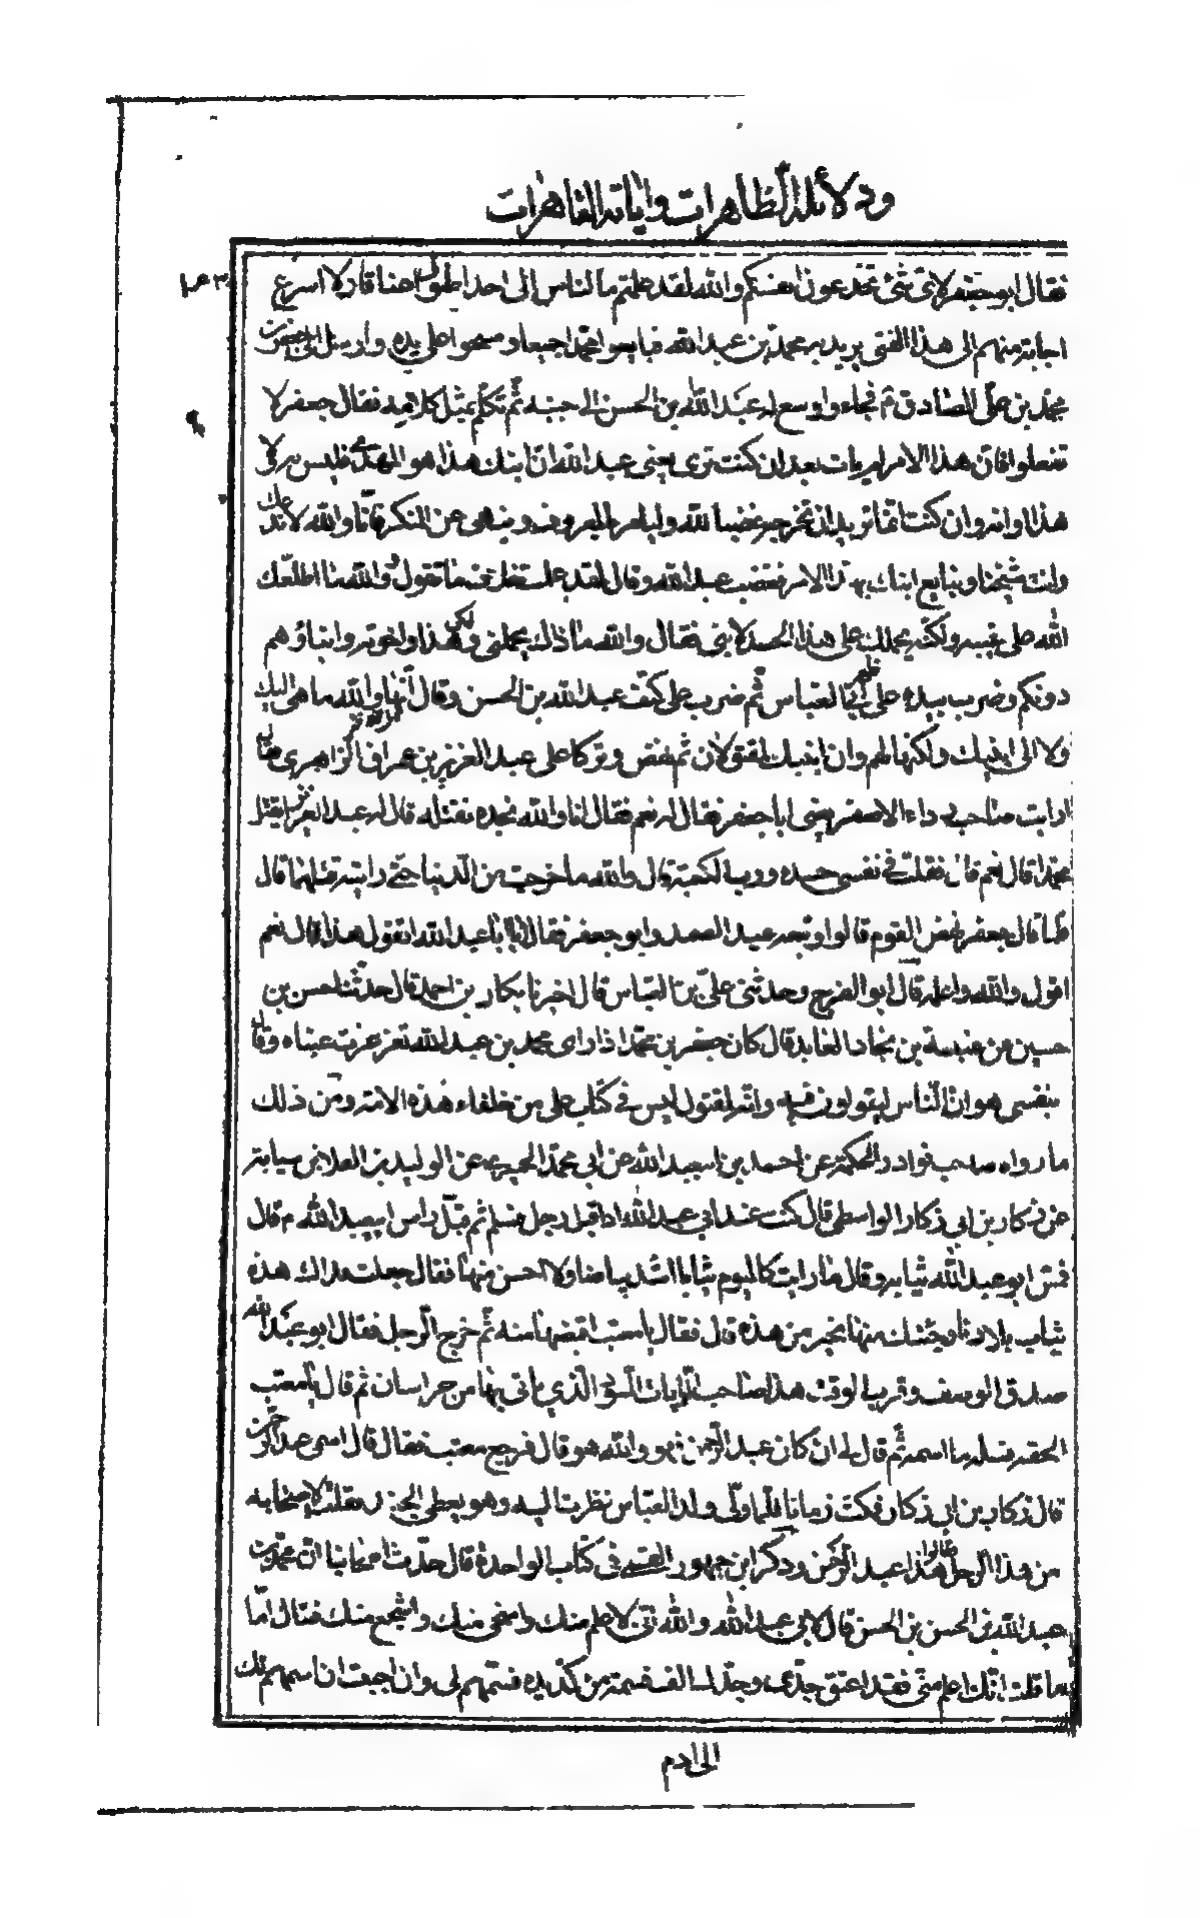 ودلائله الظاهرات واياته القاهرات
فقال ابو جعفر لاى شئ تخدعون انفسكم والله لقد علمتم ما الناس الى احد اطول اعناقا ولا اسرع
اجابة منهم الى هذا الفتى يريد به محمد بن عبد الله فبايعوا محمدا جميعا ومسحوا على يده وارسل الى جعفر بن
محمد بن على الصادق م فجاء واوسع له عبد الله بن الحسن الى جنبه ثم تكلم بمثل كلامه فقال جعفر لا
تفعلوا فان هذا الامر لم يات بعد ان كنت ترى يعنى عبد الله ان ابنك هذا هو المهدى فليس به ولا
هذا اوانه وان كنت انما تريد ان تخرجه غضبا لله وليامر بالمعروف وينهى عن المنكر فانا والله لا ندعك
وانت شيخنا ونبايع ابنك بهذا الامر فغضب عبد الله وقال لقد علمت خلاف ما تقول والله ما اطلعك
الله على غيبه ولكنه يحملك على هذا الحسد لابنى فقال والله ما ذاك يحملنى ولكن هذا واخوته وابناؤهم
دونكم وضرب بيده على ظهر ابى العباس ثم ضرب على كتف عبد الله بن الحسن وقال انها والله ما هى اليك
ولا الى ابنيك ولكنها لهم وان ابنيك لمقتولان ثم نهض وتوكا على عبد العزيز بن عمران الزهرى فقال
ارايت صاحب الرداء الاصفر يعنى ابا جعفر فقال له نعم فقال انا والله نجده يقتله قال له عبد العزيز ايقتل
محمدا قال نعم قال فقلت فى نفسى حسده ورب الكعبة قال والله ما خرجت من الدنيا حتى رايته قتلهما قال
فلما قال جعفر نهض القوم قالوا وتبعه عبد الصمد وابو جعفر فقالا يا با عبد الله اتقول هذا قال نعم
اقول والله واعلمه قال ابو الفرج وحدثنى على بن العباس قال اخبرنا بكار بن احمد قال حدثنا حسن بن
حسين عن عنبسة بن نجاد العابد قال كان جعفر بن محمد اذا راى محمد بن عبد الله تغرغرت عيناه وقال
بنفسى هو ان الناس ليقولون فيه وانه لمقتول ليس فى كتاب على من خلفاء هذه الامة ومن ذلك
ما رواه صاحب نوادر الحكمة عن احمد بن ابى عبد الله عن ابى محمد الحميرى عن الوليد بن العلا بن سيابة
عن زكار بن ابى زكار الواسطى قال كنت عند ابى عبد الله اذ اقبل رجل فسلم ثم قبل راس ابى عبد الله م قال
فمس ابو عبد الله ثيابه وقال ما رايت كاليوم ثيابا اشد بياضا ولا احسن منها فقال جعلت فداك هذه
ثياب بلادنا وجئتك منها بخير من هذه قال فقال يا معتب اقبضها منه ثم خرج الرجل فقال ابو عبد الله
صدق الوصف وقرب الوقت هذا صاحب الرايات السود الذى ياتى بها من خراسان ثم قال يا معتب
الحقه فسله ما اسمه ثم قال لى ان كان عبد الرحمن فهو والله هو قال فرجع معتب فقال قال اسمى عبد الرحمن
قال زكار بن ابى زكار فمكث زمانا فلما ولى ولد العباس نظرت اليه وهو يعطى الجند فقلت لاصحابه
من هذا الرجل فقالوا هذا عبد الرحمن وذكر ابن جمهور العمى فى كتاب الواحدة قال حدث اصحابنا ان محمد بن
عبد الله بن الحسن بن الحسن قال لابى عبد الله والله انى لاعلم منك واسخى منك واشجع منك فقال اما
ما قلت انك اعلم منى فقد اعتق جدى وجدك الف نسمة من كد يده فسمهم لى وان احببت ان اسميهم لك
الى ادم